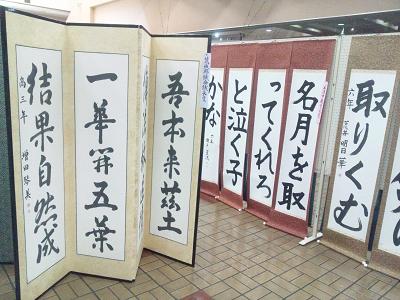 吾本来茲土
一華开五葉
結果自然成
高三年
名月を取
ってくれろ
と泣く子
かな
取りくむ
六年 荒井明日華